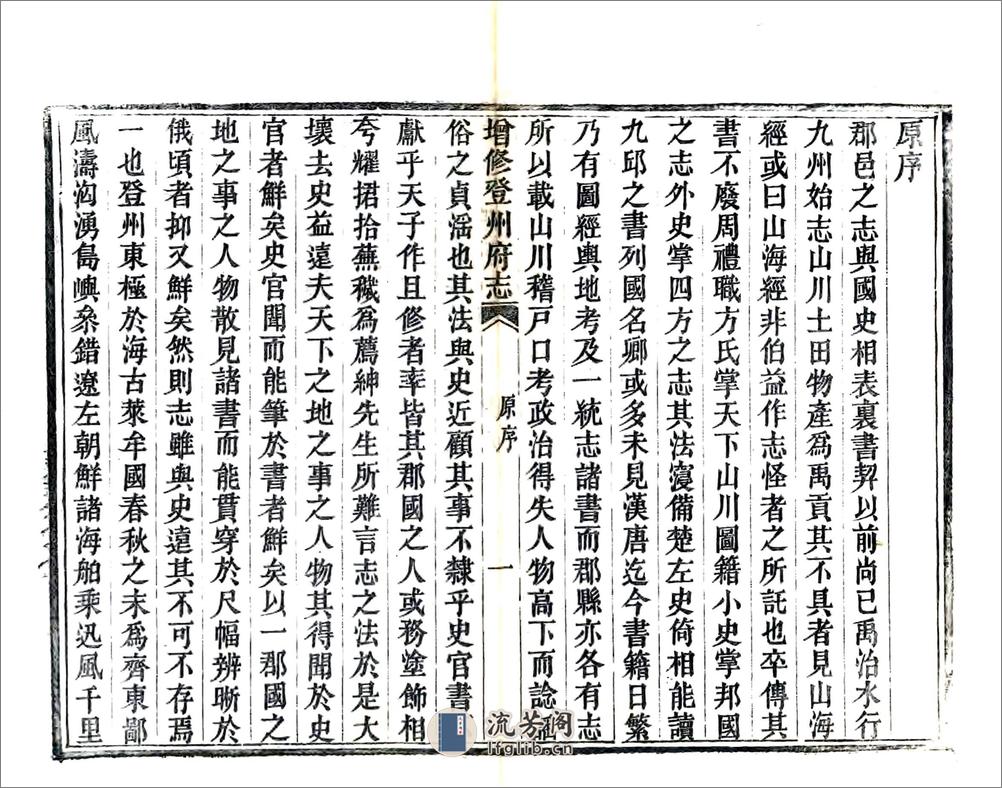 原序
郡邑之志與國史相表裏書契以前尚已禹治水行
九州始志山川土田物產為禹貢其不具者見山海
經或曰山海經非伯益作志怪者之所託也卒傳其
書不廢周禮職方氏掌天下山川圖籍小史掌邦國
之志外史掌四方之志其法寖備楚左史倚相能讀
九邱之書列國名卿或多未見漢唐迄今書籍日繁
乃有圖經輿地考及一統志諸書而郡縣亦各有志
所以載山川稽戸口考政治得失人物高下而諗
增修登州府志
原序
一
俗之貞滛也其法與史近顧其事不隸乎史官書
獻乎天子作且修者率皆其郡國之人或務塗飾相
夸耀捃拾蕪穢為薦紳先生所難言志之法於是大
壞去史益遠夫天下之地之事之人物其得聞於史
官者鮮矣史官聞而能筆於書者鮮矣以一郡國之
地之事之人物散見諸書而能貫穿於尺幅辨晰於
俄頃者抑又鮮矣然則志雖與史遠其不可不存焉
一也登州東極於海古萊牟國春秋之末為齊東鄙
風濤洶湧島嶼叅錯遼左朝鮮諸海舶乘迅風千里
流芳閣
lfglib.cn